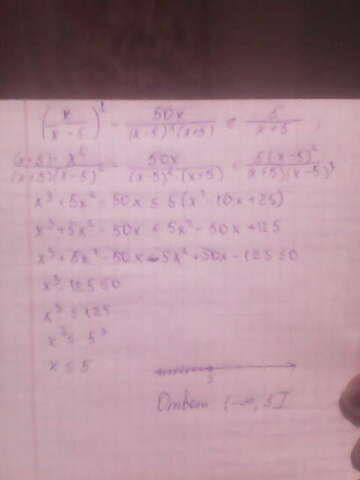 (x/(x-5))² - 50x/((x-5)²(x+5)) ≤ 5/(x+5)
(x+5)·x²/((x+5)(x-5)²) - 50x/((x-5)²(x+5)) ≤ 5(x-5)²/((x+5)(x-5)²)
x³+5x²-50x ≤ 5(x²-10x+25)
x³+5x²-50x ≤ 5x²-50x+125
x³+5x²-50x-5x²+50x-125≤0
x³-125≤0
x³≤125
x³≤5³
x≤5
5
Ответ (-∞, 5]